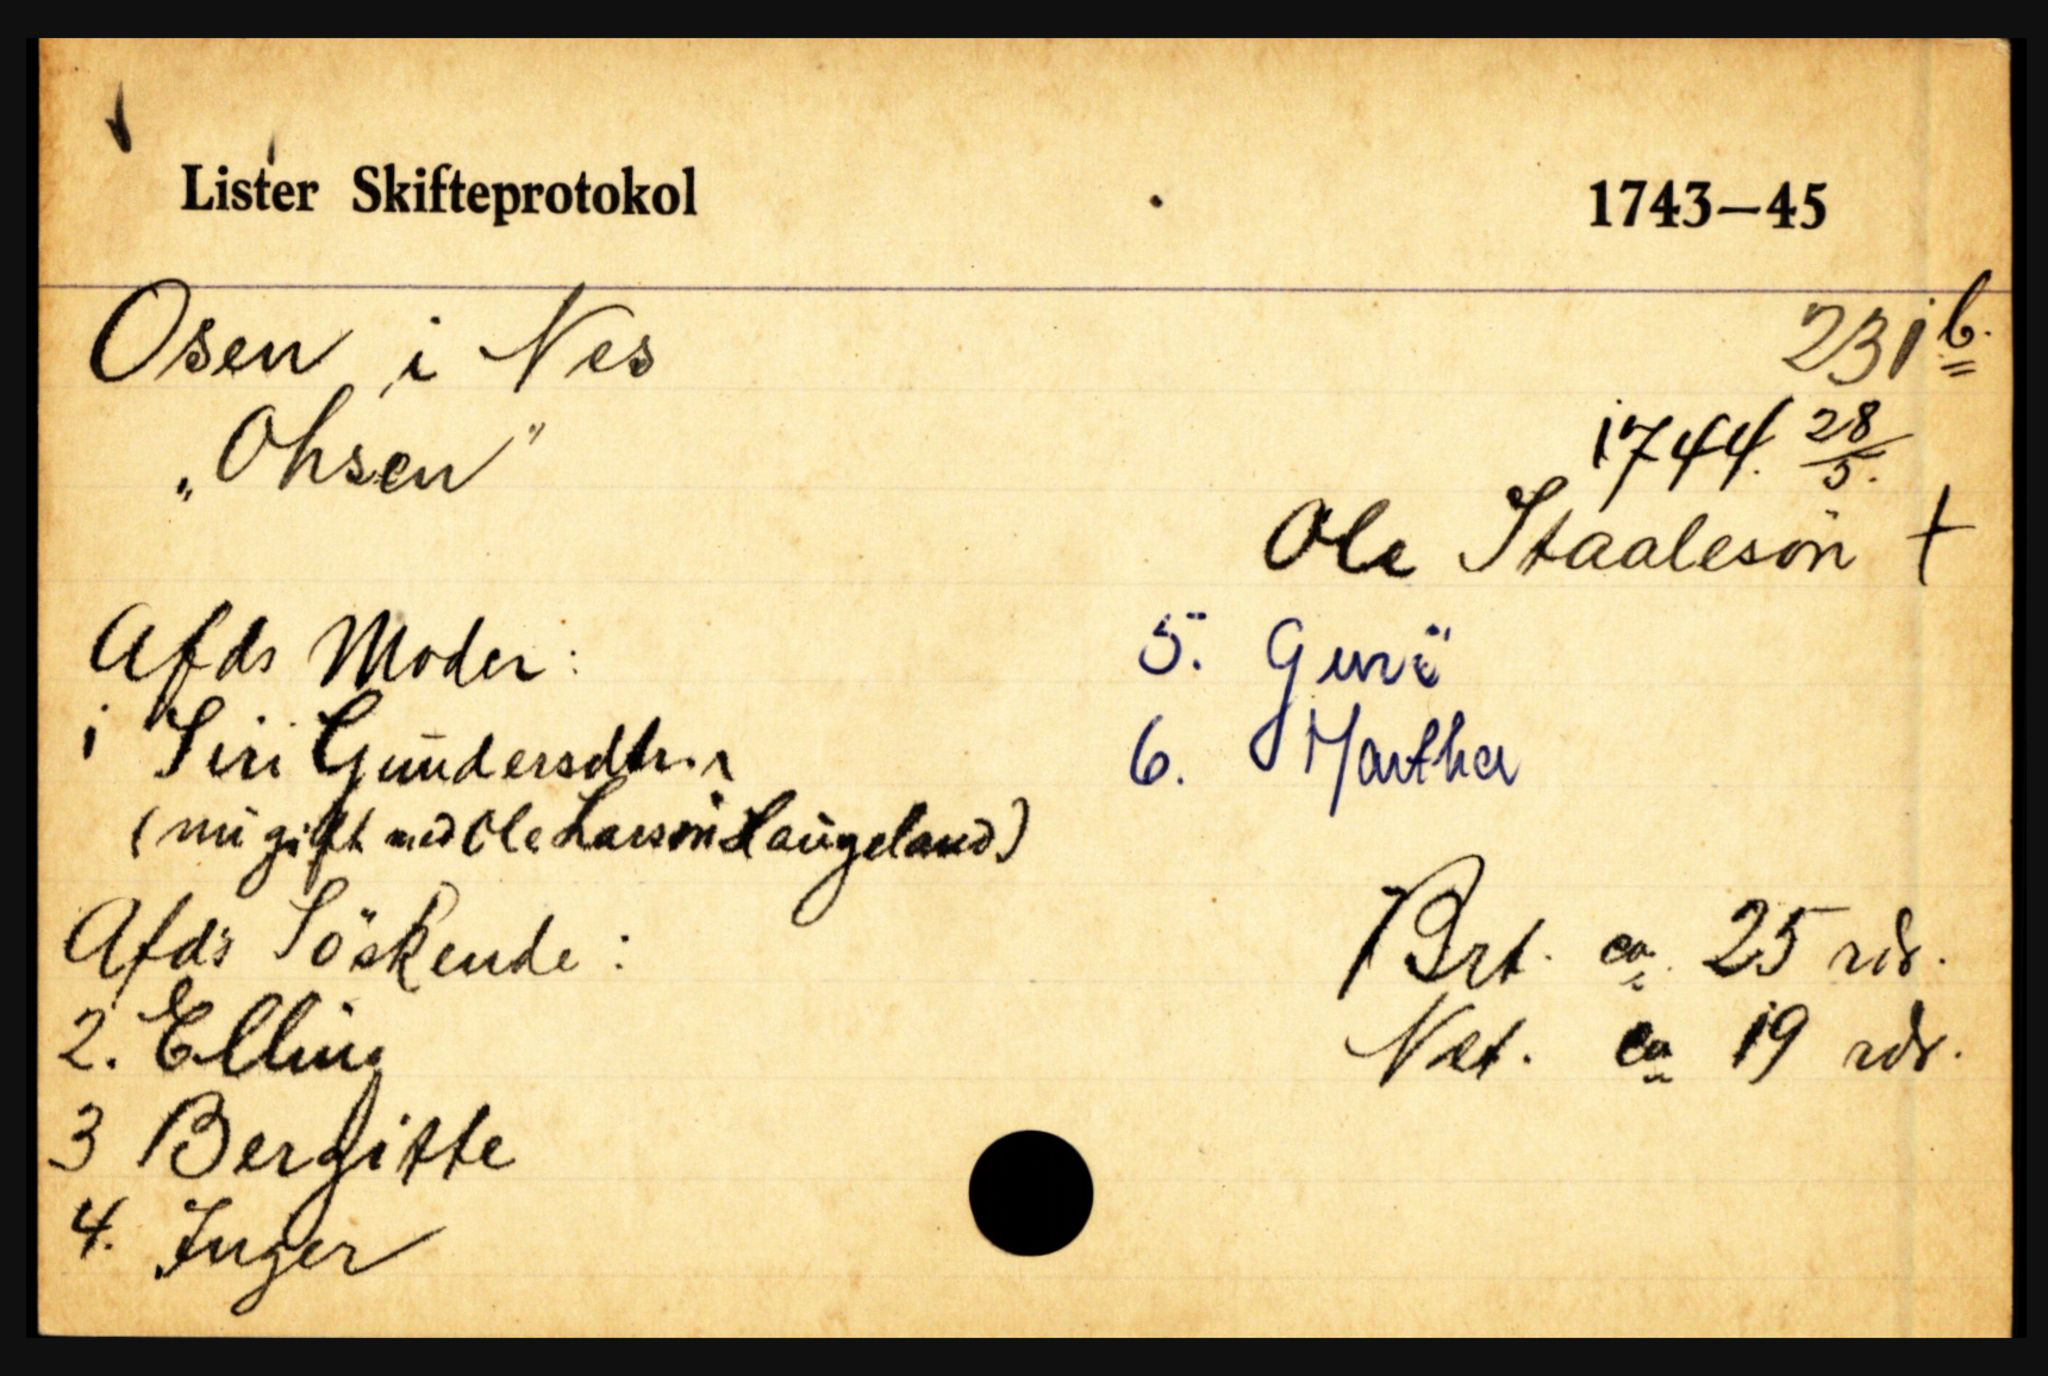 Lister Skifteprotokol 1743–45
Osen i Nes 231 b.
„Ohsen" 1744. 28/5.
Ole Staalesön †
Afds Moder:
1 Siri Gundersdtr.
(nu gift med Ole Larsön Haugeland)
Afds Söskende:
2. Elling
3 Bergitte
4. Inger
5. Guri
6. Martha
Brt. ca. 25 rdr.
Net. ca 19 rdr.